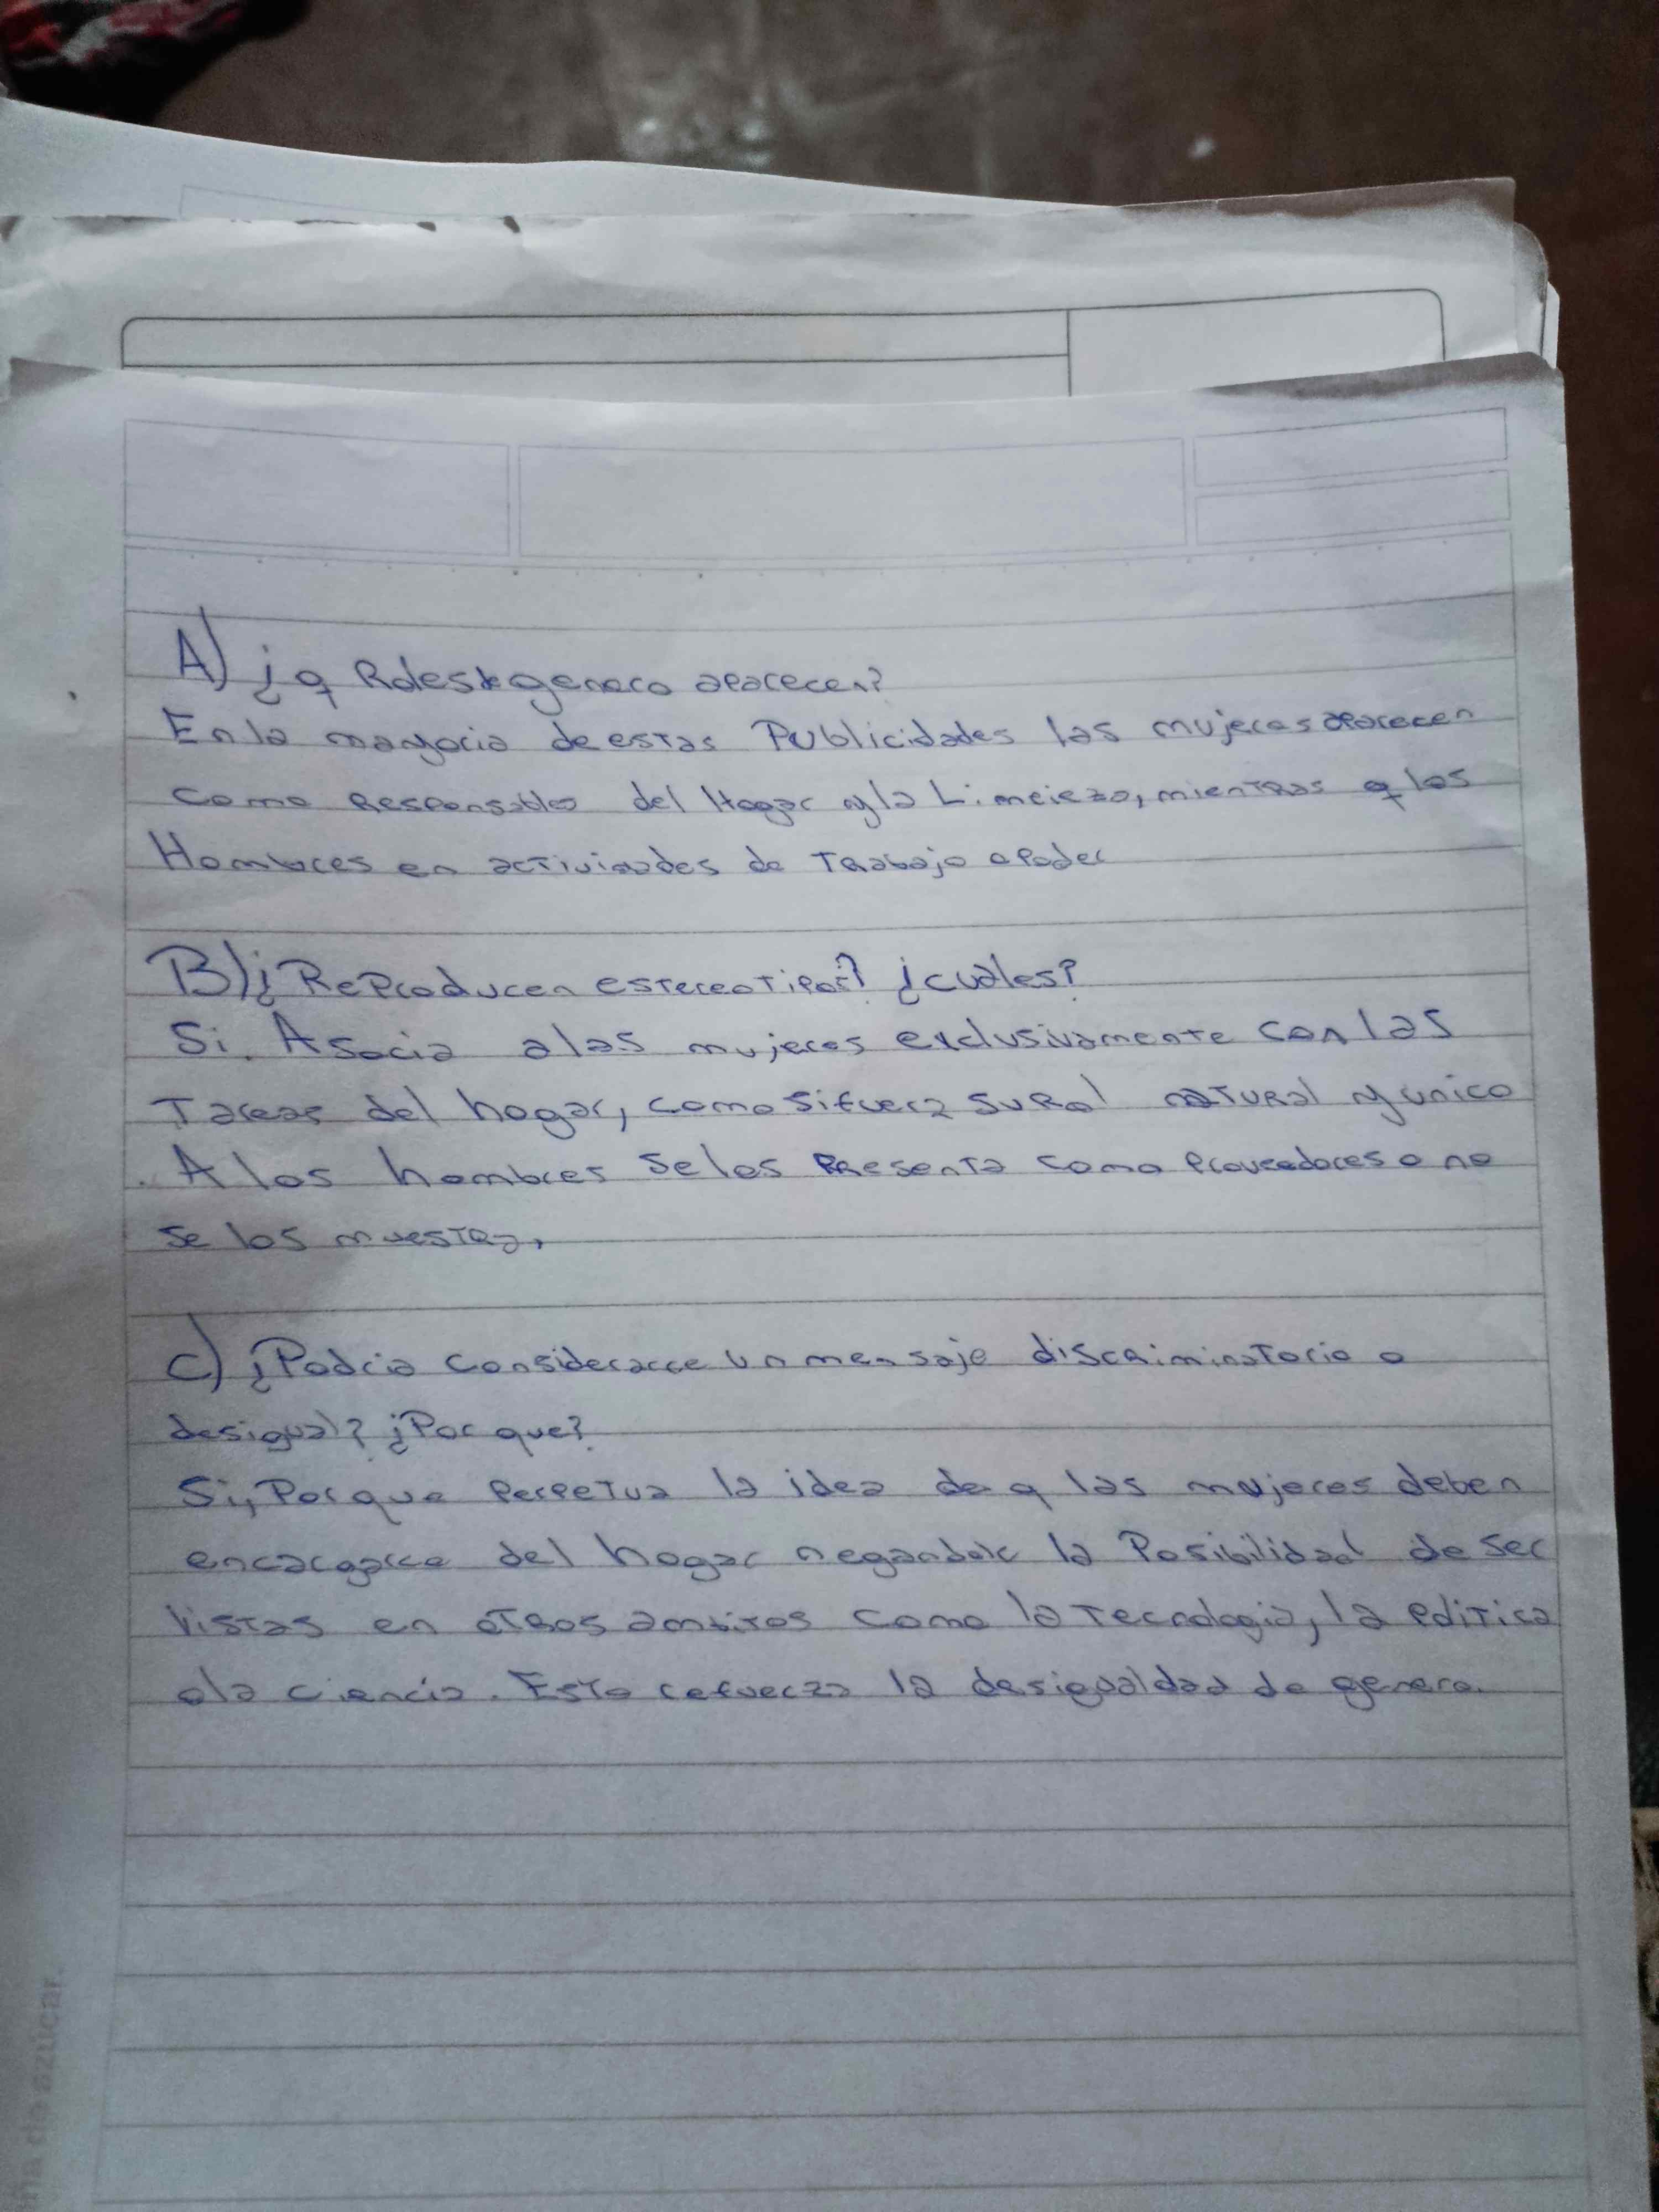 A) ¿q Roles de genero aparecen?
En la mayoria de estas Publicidades las mujeres aparecen
como Responsables del Hogar y la Limpieza, mientras q los
Hombres en actividades de Trabajo o Poder
B) ¿Reproducen estereotipos? ¿cuáles?
Si. Asocia a las mujeres exclusivamente con las
Tareas del hogar, como si fuera su Rol natural y único
. A los hombres se los presenta como proveedores o no
se los muestra,
C) ¿Podria considerarce un mensaje discriminatorio o
desigual? ¿Por que?
Si, Porque perpetua la idea de q las mujeres deben
encargarce del hogar negandole la Posibilidad de ser
vistas en otros ambitos como la tecnologia, la politica
o la ciencia. Esto refuerza la desigualdad de genero.
ina de azúcar.